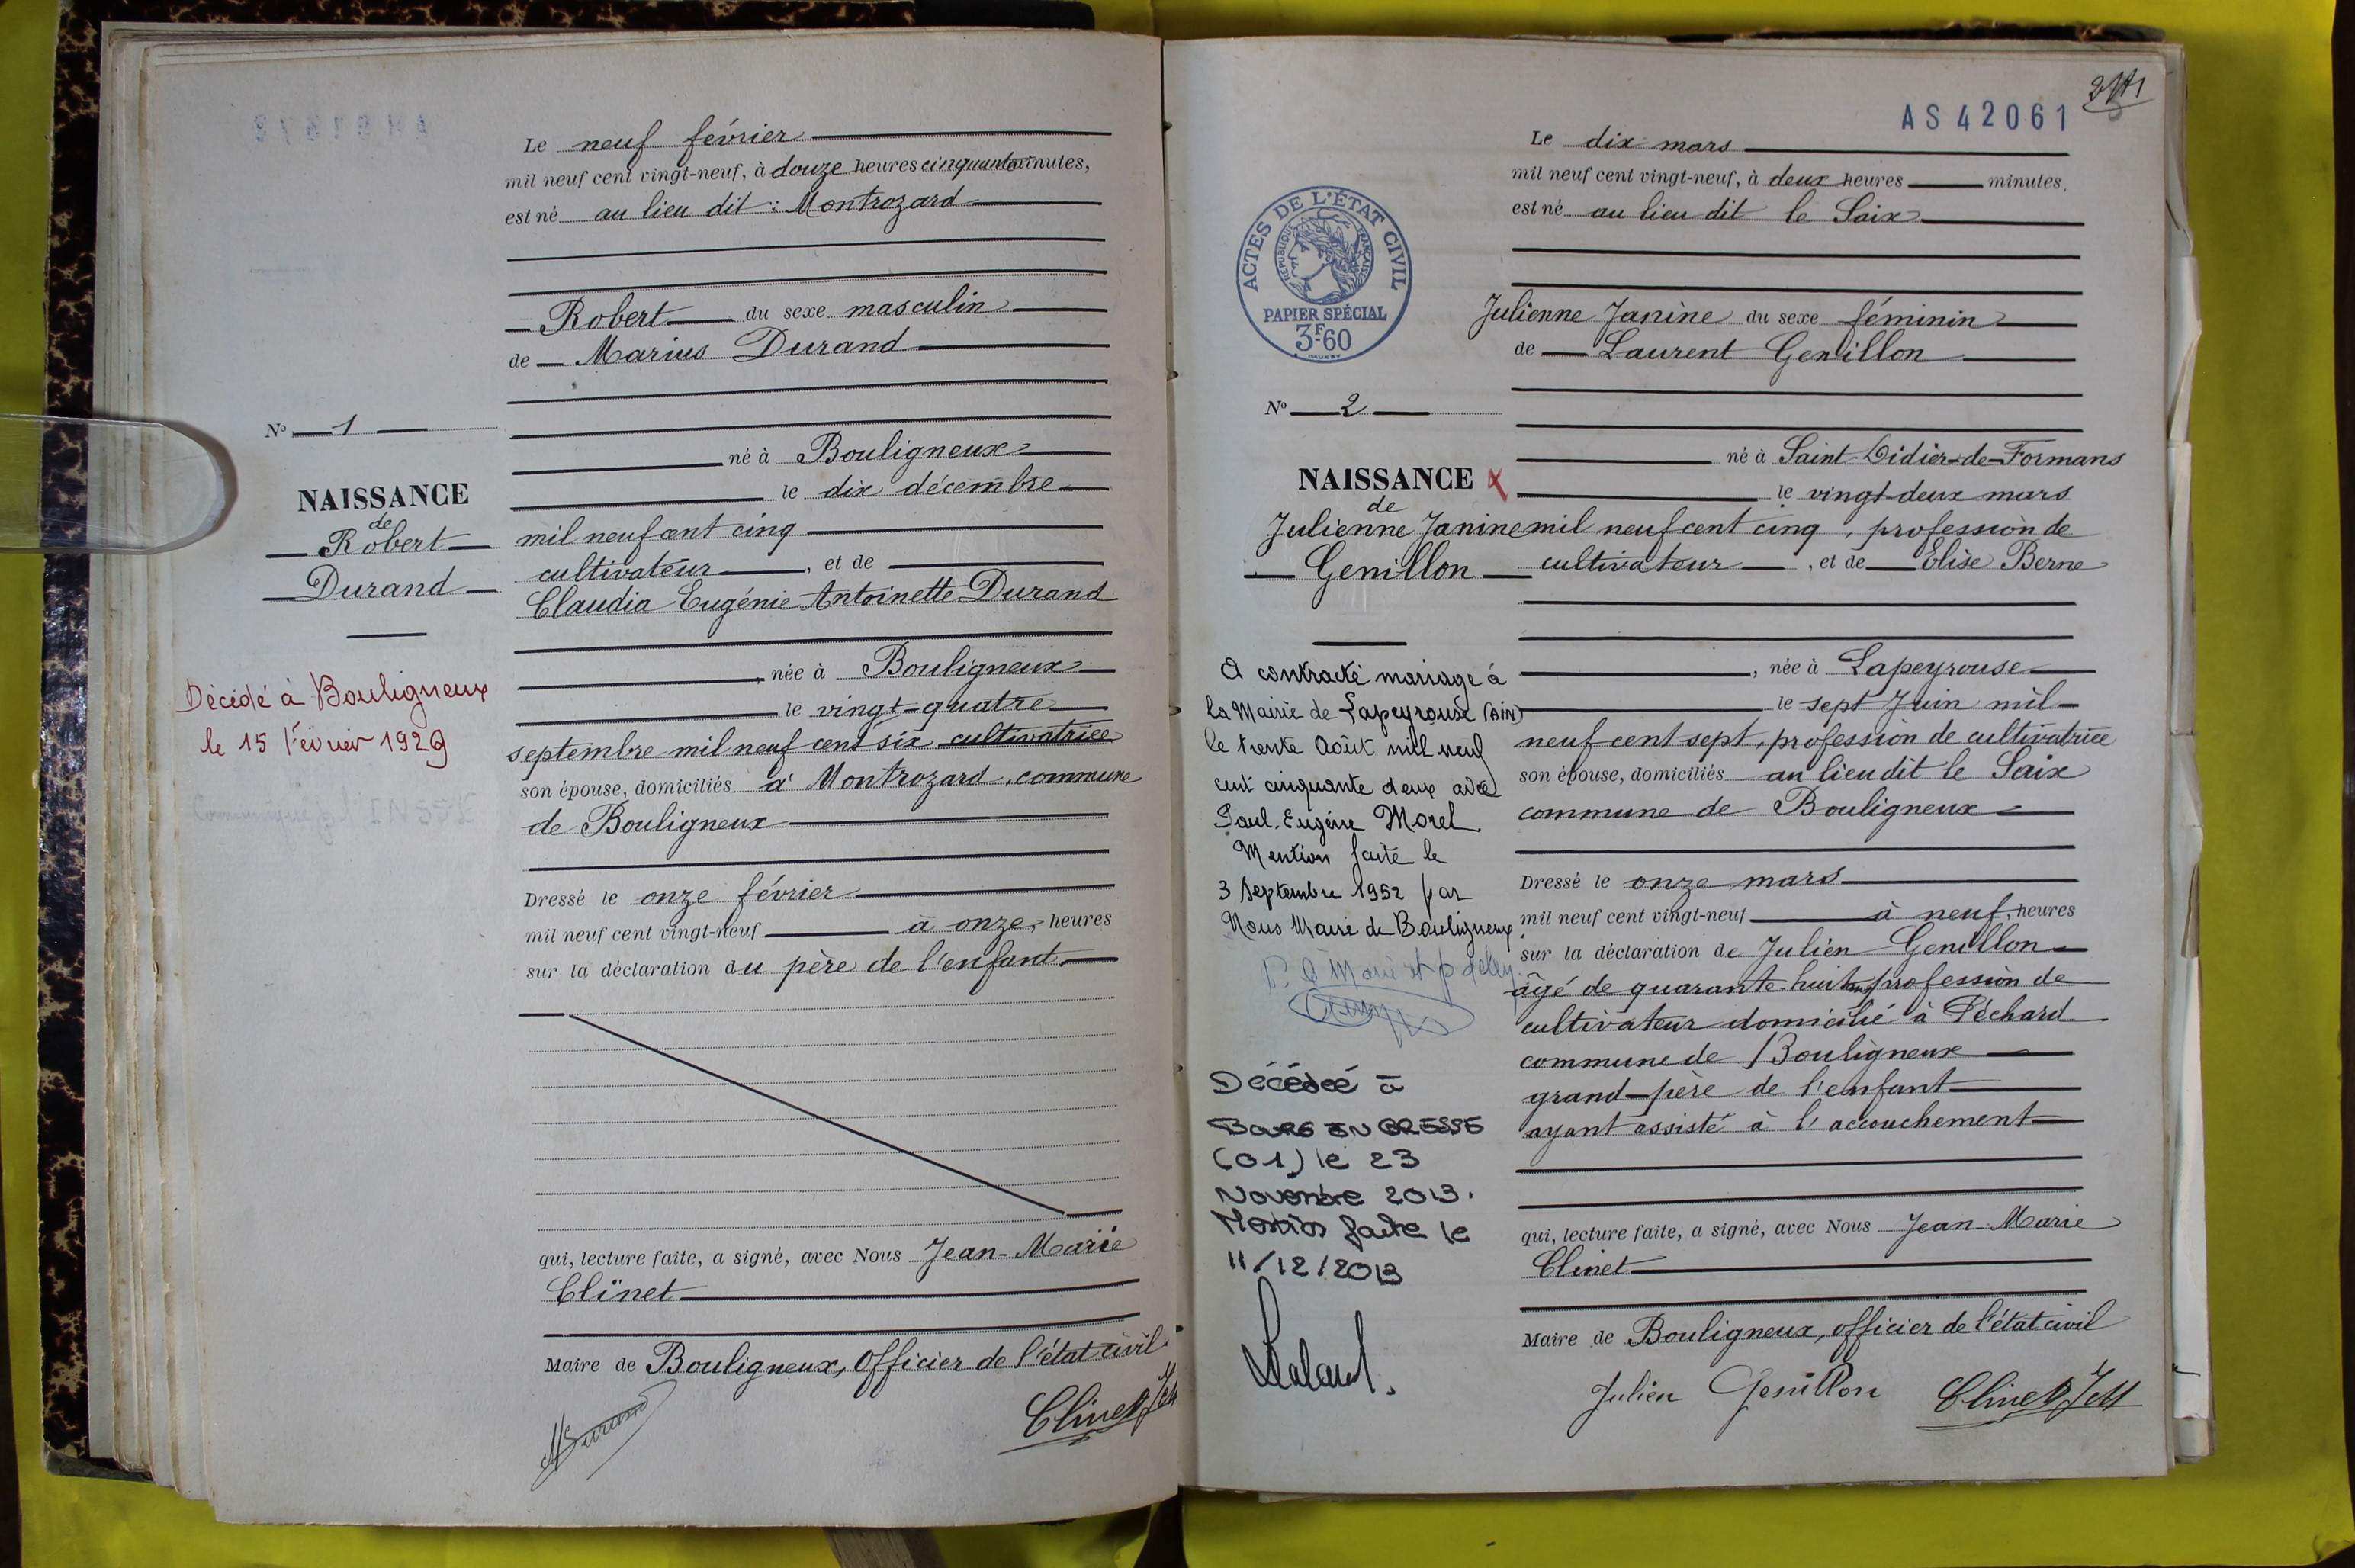 Le neuf février
mil neuf cent vingt-neuf, à douze heures cinquante minutes,
est né au lieu dit : Montrozard
Robert du sexe masculin
de Marius Durand
né à Bouligneux
le dix décembre
mil neuf cent cinq
cultivateur, et de
Claudia Eugénie Antoinette Durand
née à Bouligneux
le vingt-quatre
septembre mil neuf cent six cultivatrice
son épouse, domiciliés à Montrozard, commune
de Bouligneux
Dressé le onze février
mil neuf cent vingt-neuf à onze heures
sur la déclaration du père de l'enfant
qui, lecture faite, a signé, avec Nous Jean-Marie
Clinet
Maire de Bouligneux, Officier de l'état civil
MDurand
Clinet JM
No 1
NAISSANCE
de
Robert
Durand
Décédé à Bouligneux
le 15 février 1929
AS 42061
Le dix mars
mil neuf cent vingt-neuf, à deux heures minutes,
est né au lieu dit le Saix
Julienne Janine du sexe féminin
de Laurent Genillon
né à Saint-Didier-de-Formans
le vingt-deux mars
mil neuf cent cinq, profession de
cultivateur, et de Elise Berne
, née à Lapeyrouse
le sept Juin mil
neuf cent sept, profession de cultivatrice
son épouse, domiciliés au lieu dit le Saix
commune de Bouligneux
Dressé le onze mars
mil neuf cent vingt-neuf à neuf heures
sur la déclaration de Julien Genillon
âgé de quarante-huit ans profession de
cultivateur domicilié à Péchard
commune de Bouligneux
grand-père de l'enfant
ayant assisté à l'accouchement
qui, lecture faite, a signé, avec Nous Jean-Marie
Clinet
Maire de Bouligneux, officier de l'état civil
Julien Genillon Clinet JM
ACTES DE L'ÉTAT CIVIL
RÉPUBLIQUE FRANÇAISE
PAPIER SPÉCIAL
3F60
No 2
NAISSANCE
de
Julienne Janine
Genillon
A contracté mariage à
la Mairie de Lapeyrouse (Ain)
le trente Août mil neuf
cent cinquante deux avec
Paul Eugène Morel
Mention faite le
3 Septembre 1952 par
Nous Maire de Bouligneux
Décédée à
BOURG EN BRESSE
(01) le 23
Novembre 2013.
Mention faite le
11/12/2013